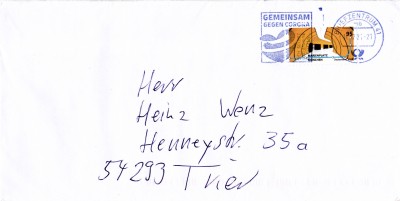 GEMEINSAM
GEGEN CORONA
BRIEFZENTRUM 41
95
Herr
Heinz Wenz
Henneystr. 35a
54293 Trier